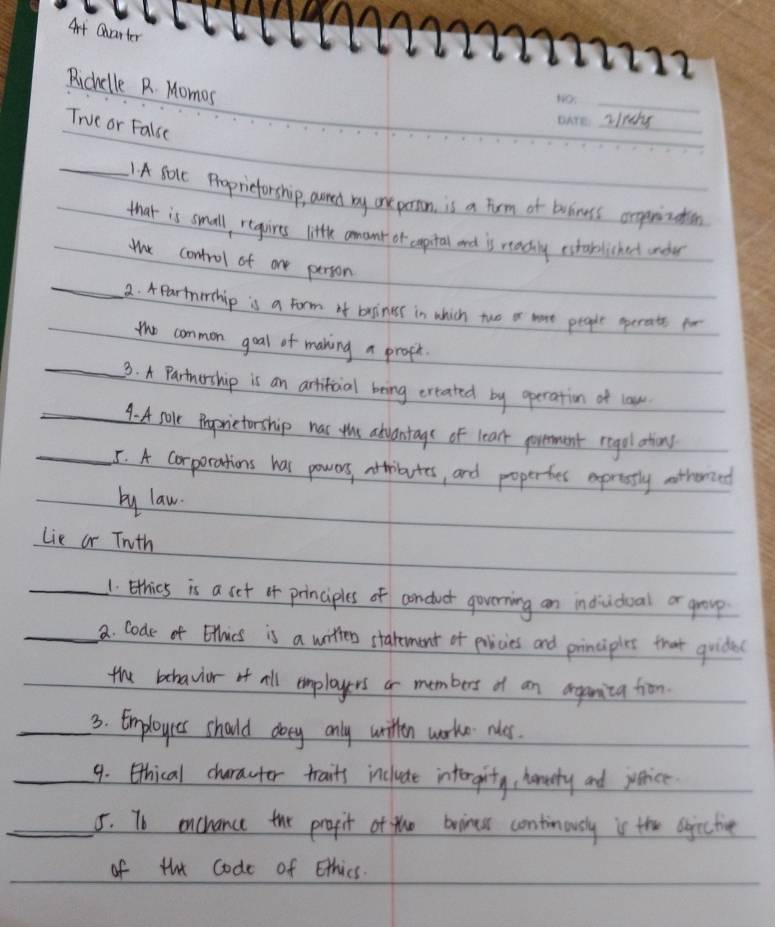 4t Quarter
Richelle R. Momos
NO:
DATE:
True or False
1. A sole Proprietorship, owned by one person, is a Form of business organization
that is small, requires little amount of capital and is readily established under
the control of one person
2. A Partnership is a Form of business in which two or more people operate for
the common goal of making a profit.
3. A Partnership is an artificial being created by operation of law.
4. A sole Proprietorship has the advantage of least government regulations
5. A Corporations has powers, attributes, and properties expressly authorized
by law.
Lie or Truth
1. Ethics is a set of principles of conduct governing an individual or group.
2. Code of Ethics is a written statement of policies and principles that guides
the behavior of all employers or members of an organization.
3. Employees should obey only written works rules.
4. Ethical character traits include intergity, honesty and justice.
5. To enchance the profit of the business continuously is the objective
of the Code of Ethics.